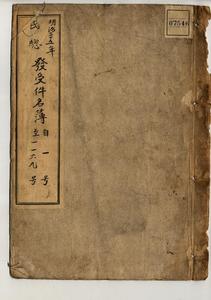 明治三十五年
民慇 發受件名簿 自一号
至一一六九号
07546